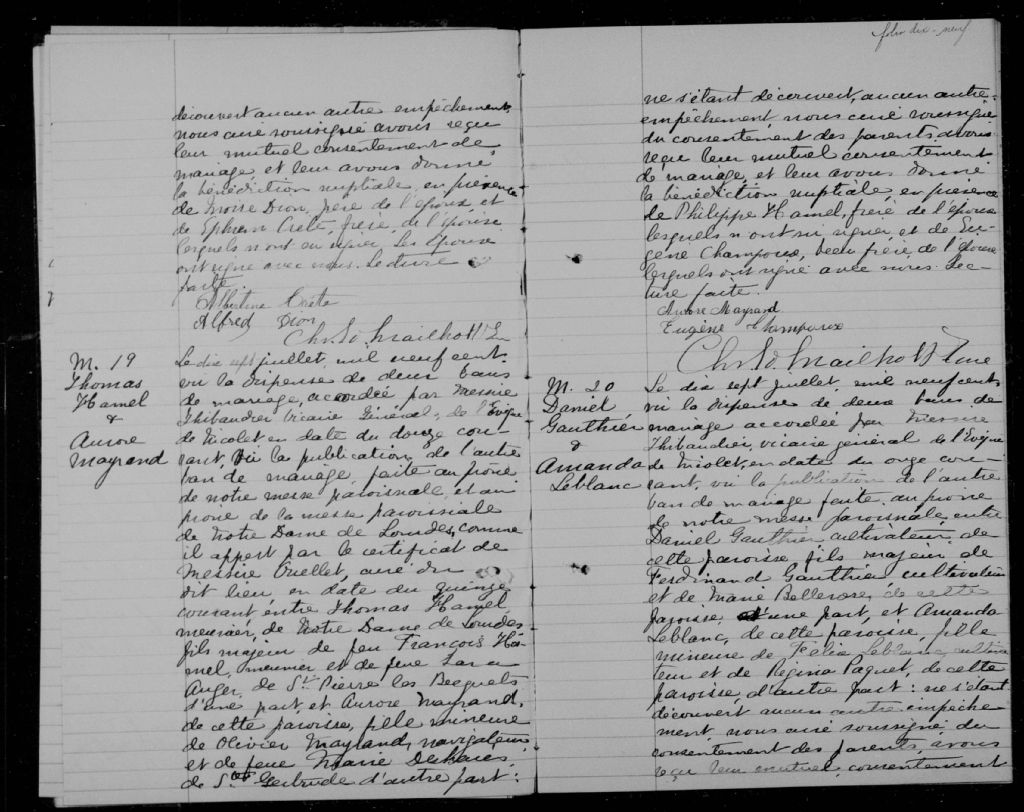 découvert aucun autre empêchement
nous curé soussigné avons reçu
leur mutuel consentement de
mariage, et leur avons donné
la bénédiction nuptiale, en présence
de Moïse Dion, père de l'époux, et
de Ephrem Crete, frère, de l'épouse
lesquels n'ont su signer, Les époux
ont signé avec nous. Lecture
faite
Albertine Crete
Alfred Dion
Chs. Ed. Mailhott
M. 19
Thomas
Hamel
&
Aurore
Mayrand
Le dix sept juillet, mil neuf cent
vu la dispense de deux bans
de mariage, accordée par Messire
Thibaudier Vicaire Général, de l'Evêque
de Nicolet en date du douze cou-
rant, vu la publication de l'autre
ban de mariage, faite au prône
de notre messe paroissiale, et au
prône de la messe paroissiale
de Notre Dame de Lourdes, comme
il appert par le certificat de
Messire Ouellet, curé du
dit lieu, en date du quinze
courant entre Thomas Hamel,
meunier, de Notre Dame de Lourdes
fils majeur de feu François Ha-
mel, meunier et de feue
Auger, de St Pierre les Becquets
d'une part, et Aurore Mayrand,
de cette paroisse, fille mineure
de Olivier Mayrand, navigateur
et de feue Marie
de Ste Gertrude d'autre part :
folio dix-neuf
ne s'étant découvert, aucun autre
empêchement, nous curé soussigné
du consentement des parents, avons
reçu leur mutuel consentement
de mariage, et leur avons donné
la bénédiction nuptiale, en présence
de Philippe Hamel, frère de l'époux
lesquels n'ont su signer et de Eu-
gène Champoux, beau frère, de l'épouse
lesquels ont signé avec nous. Lec-
ture faite.
Aurore Mayrand
Eugène Champoux
Chs. Ed. Mailhott Ptre
M. 20
Daniel
Gauthier
&
Amanda
Leblanc
Le dix sept juillet, mil neuf cent
vu la dispense de deux bans de
mariage accordée par Messire
Thibaudier, vicaire général de l'Evêque
de Nicolet, en date du onze cou-
rant, vu la publication de l'autre
ban de mariage faite, au prône
de notre messe paroissiale, entre
Daniel Gauthier cultivateur, de
cette paroisse, fils majeur de
Ferdinand Gauthier, cultivateur
et de Marie Bellerose, de cette
paroisse, d'une part, et Amanda
Leblanc, de cette paroisse, fille
mineure de Félix Leblanc, cultiva
teur et de Régina Paquet, de cette
paroisse, d'autre part : ne s'étant
découvert aucun autre empêche
ment, nous curé soussigné, du
consentement des parents, avons
reçu leur mutuel consentement